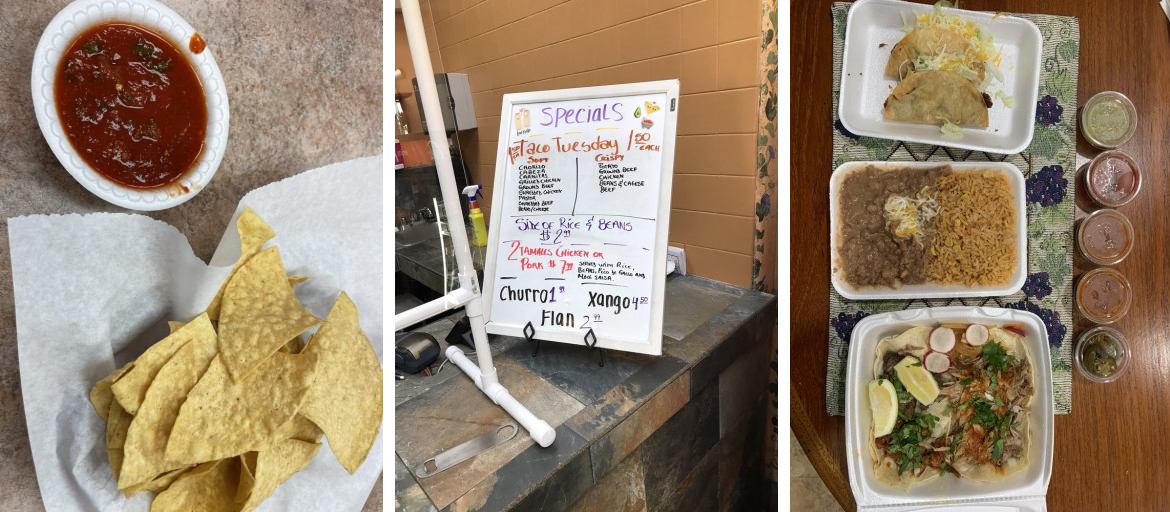 Specials
Taco Tuesday 1 50 each
Soft
Crispy
Chorizo
Cabeza
Carnitas
Grilled Chicken
Ground Beef
Shredded Chicken
Pastor
Shredded Beef
Beans/Cheese
Potato
Ground Beef
Chicken
Beans & Cheese
Beef
Side of Rice & Beans
$ 2.99
2 Tamales Chicken or
Pork $ 7.99
served with Rice,
Beans, Pico de Gallo and
Mild Salsa.
Churro 1 99
Xango 4 50
Flan 2 99